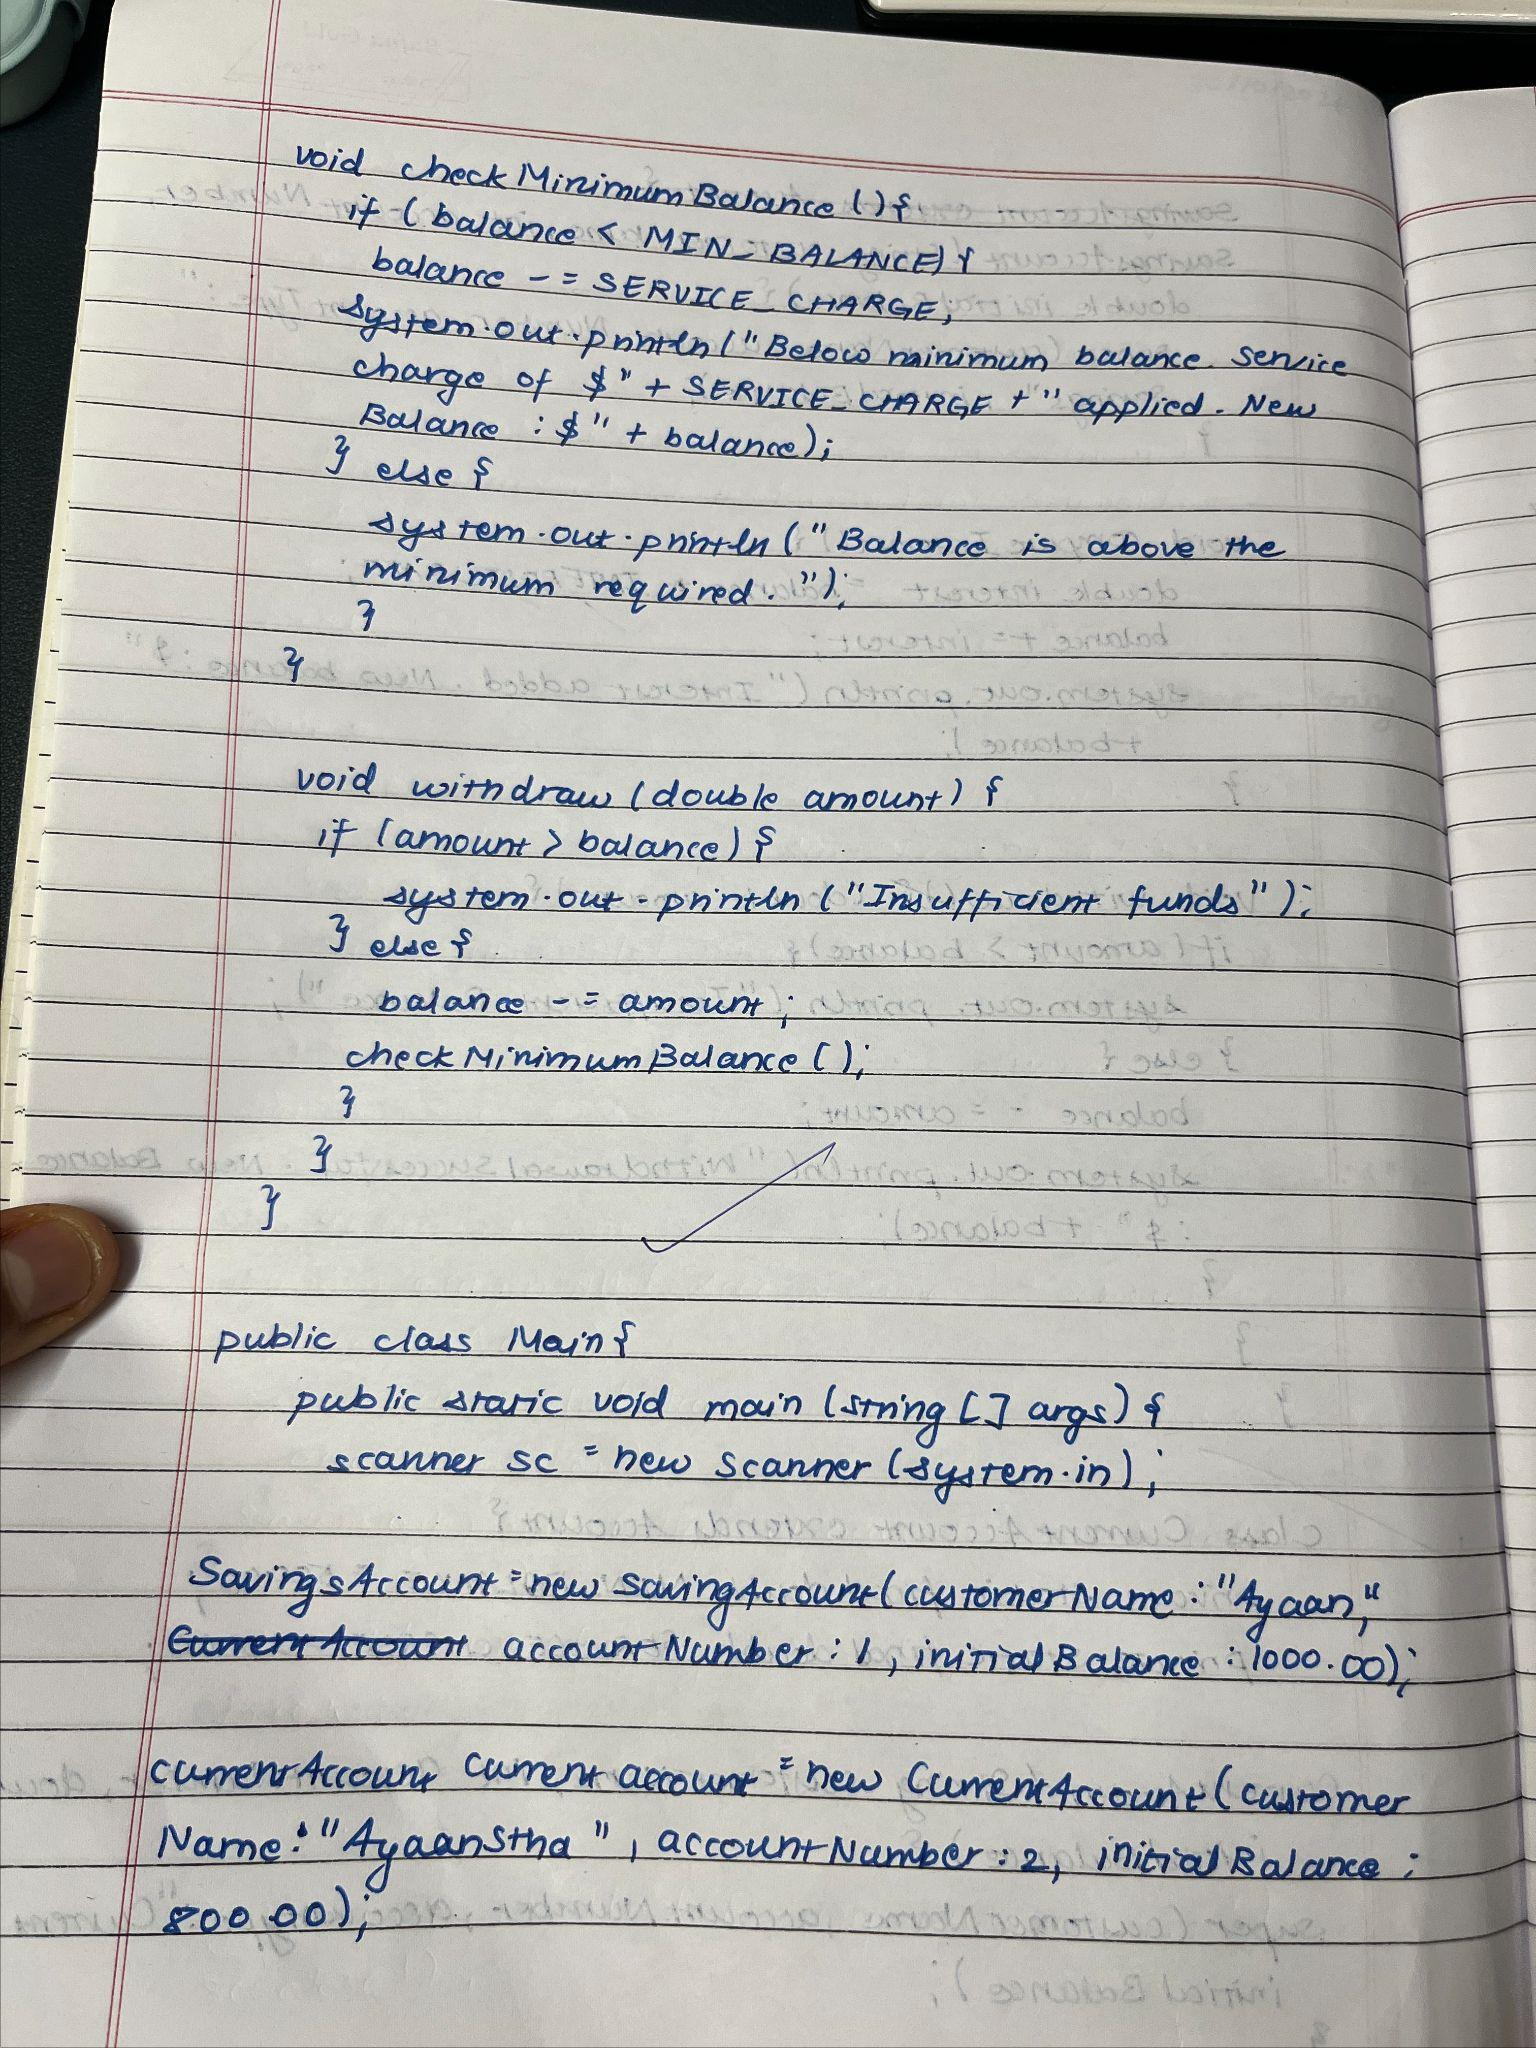 void checkMinimumBalance (){
if (balance < MIN_BALANCE) {
balance -= SERVICE_CHARGE;
system.out.println ("Below minimum balance. Service
charge of $" + SERVICE_CHARGE + " applied. New
Balance : $" + balance);
} else {
system.out.println ("Balance is above the
minimum required. ");
}
}
void withdraw (double amount) {
if (amount > balance) {
system.out.println ("Insufficient funds");
} else {
balance -= amount;
checkMinimumBalance ();
}
}
}
public class Main {
public static void main (string [] args) {
scanner sc = new scanner (system.in);
SavingsAccount = new SavingAccount (customerName : "Ayaan,"
CurrentAccount accountNumber : 1, initialBalance : 1000.00);
currentAccount Current account = new CurrentAccount (customer
Name: "AyaanStha", accountNumber : 2, initialBalance :
800.00);